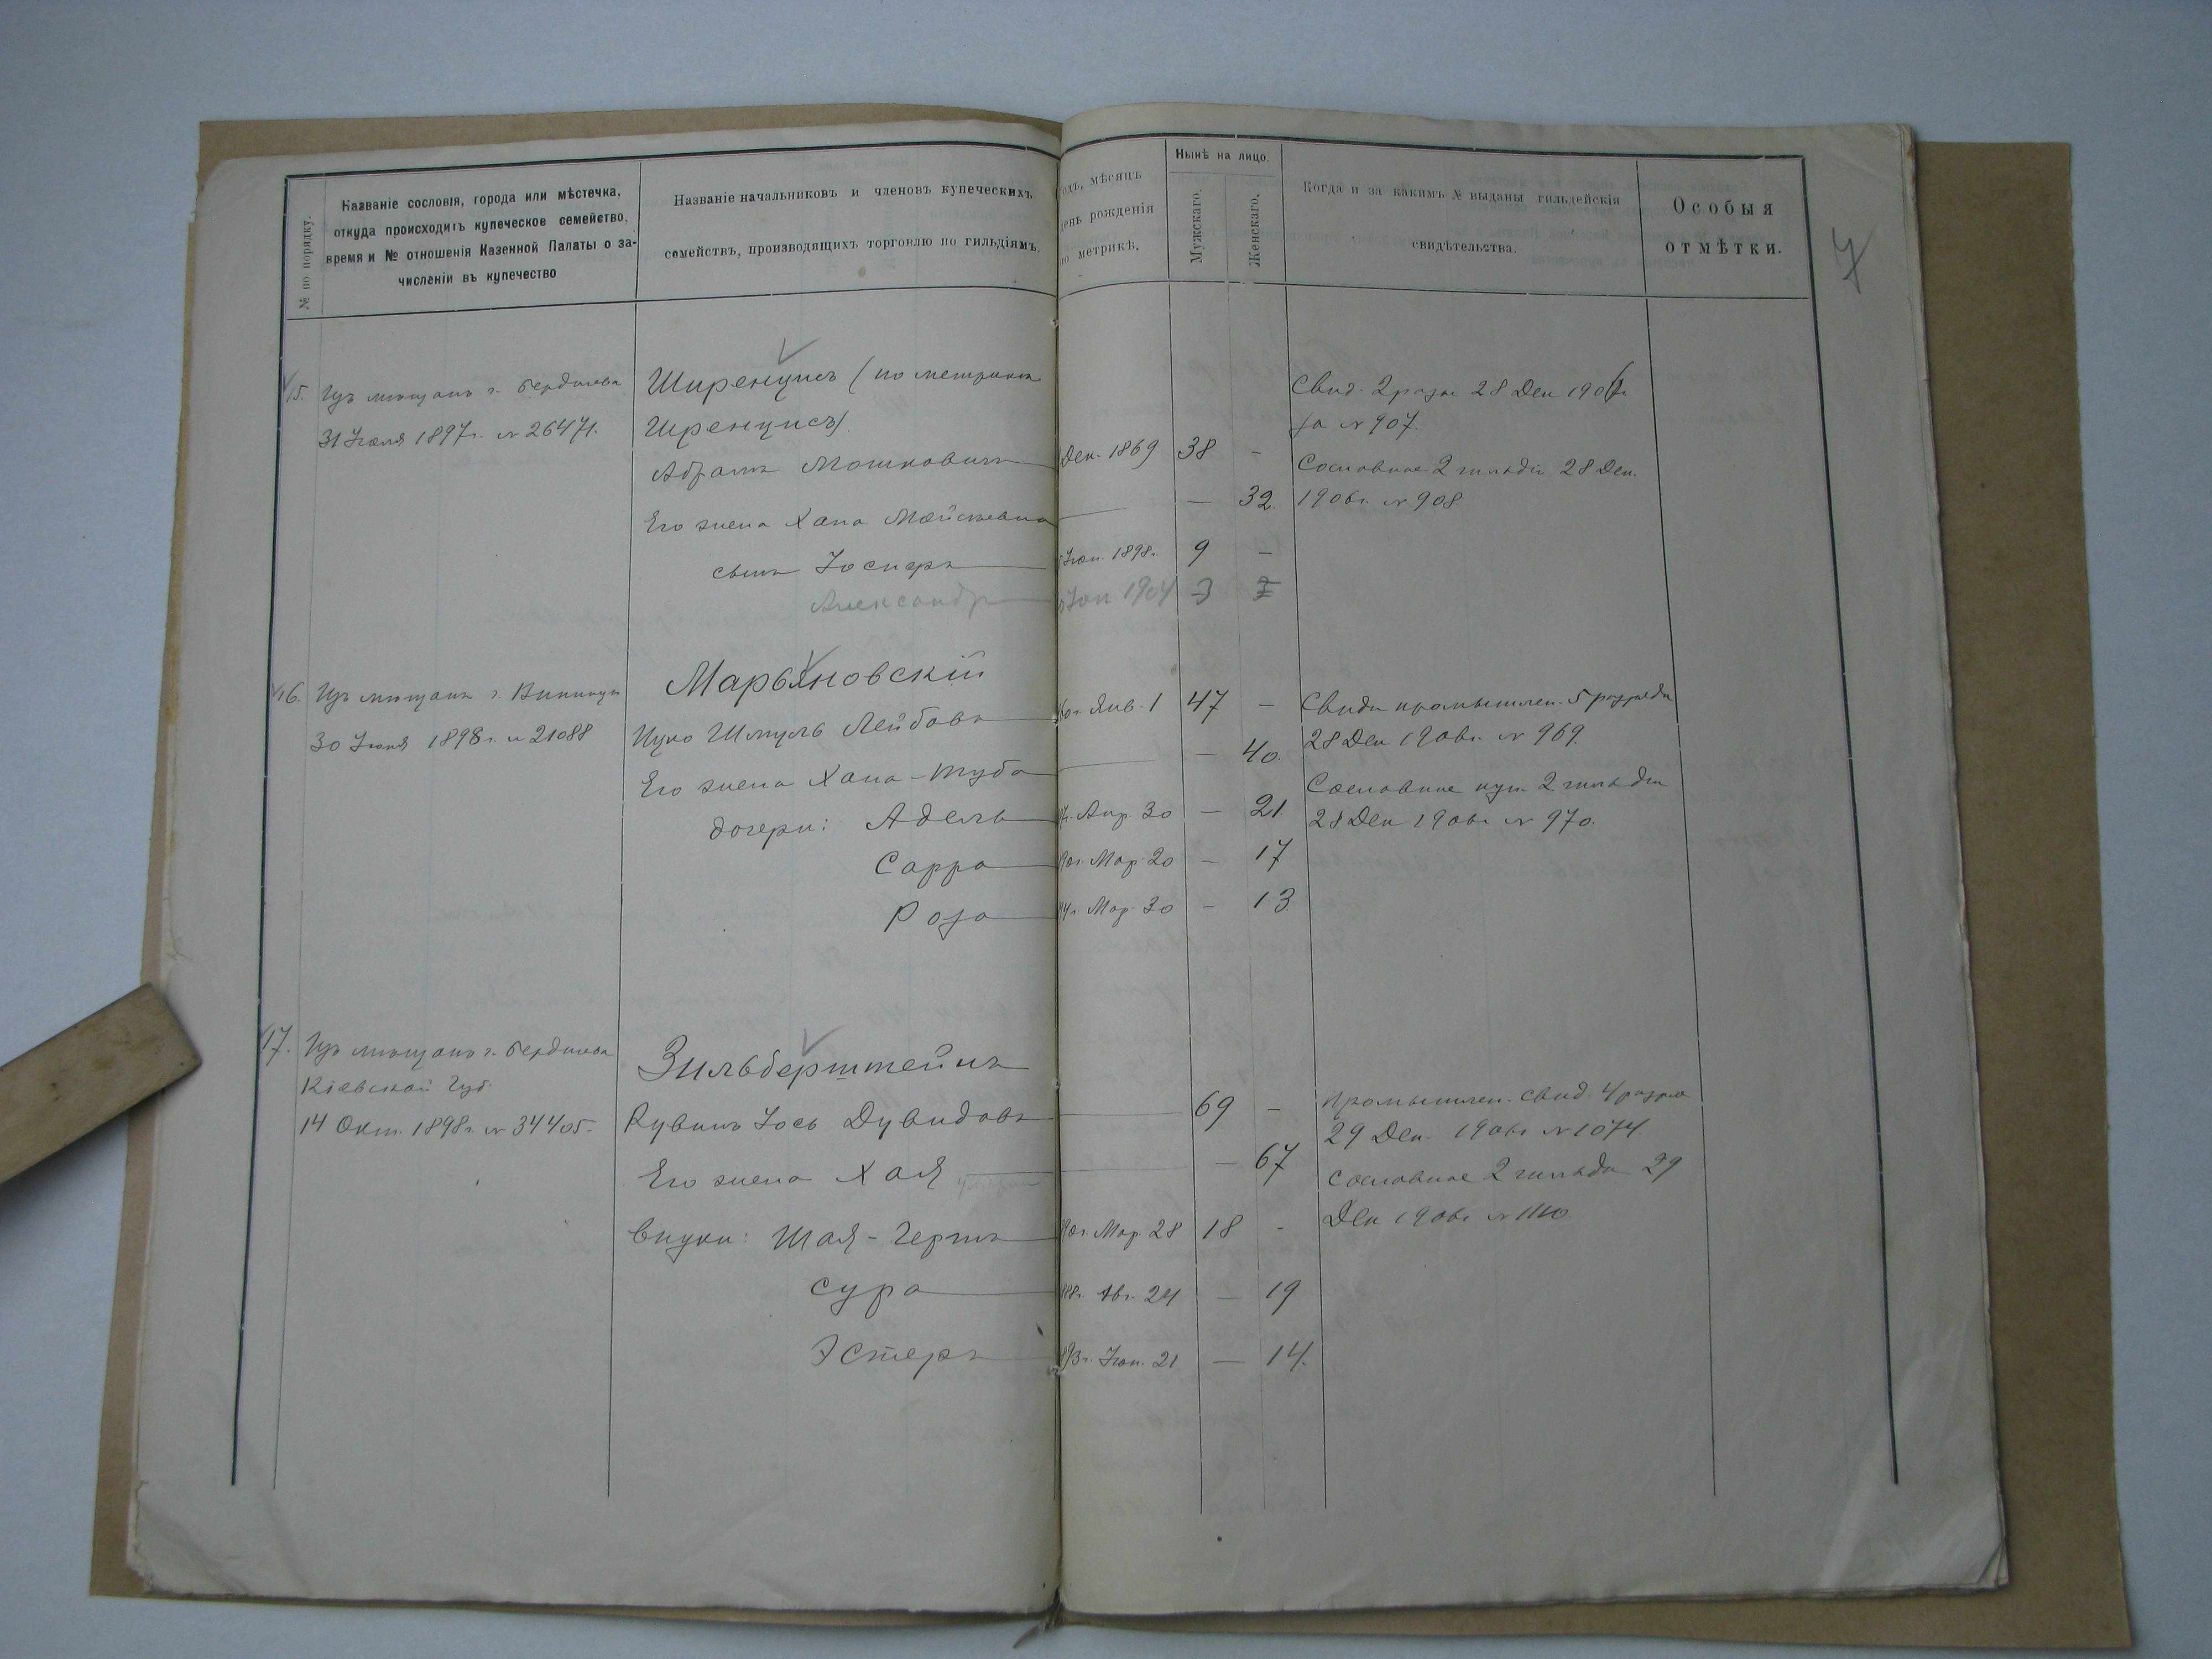 № по порядку.
Названіе сословія, города или мѣстечка,
откуда происходитъ купеческое семейство,
время и № отношенія Казенной Палаты о за-
численіи въ купечество
Названіе начальниковъ и членовъ купеческихъ
семействъ, производящихъ торговлю по гильдіямъ.
одъ, мѣсяцъ
ень рожденія
по метрикѣ.
Нынѣ на лицо.
Мужскаго.
Женскаго.
Когда и за какимъ № выданы гильдейскія
свидѣтельства.
Особыя
отмѣтки.
7
15. Изъ мѣщанъ г. Бердичева
31 Іюля 1897г. № 26471.
Ширенцисъ (по метрикѣ
Шренцисъ)
Абрамъ Мошковичъ Дек. 1869 38 -
Его жена Хана — 32.
сынъ Іосифъ Іюн. 1898г. 9 -
Александръ 1904 3
Свид. 2 разр 28 Дек 1906г
за № 907.
Сословное 2 гильдіи 28 Дек.
1906г. № 908
16. Изъ мѣщанъ г. Винницы
30 Іюня 1898г. № 21088
Марьяновскій
Ицко Шмуль Лейбовъ Янв. 1 47 -
Его жена Хана-Туба — 40.
дочери: Адель Апр. 30 - 21.
Сарра Мар. 20 - 17
Роза Мар. 30 - 13
Свидѣ промышлен. 5 разряда
28 Дек 1906г. № 969.
Сословное куп. 2 гильдіи
28 Дек 1906г № 970.
17. Изъ мѣщанъ г. Бердичева
Кіевской Губ.
14 Окт. 1898г. № 34405.
Зильберштейнъ
Рувинъ Іось Дувидовъ 69 -
Его жена Хая — 67
внуки: Шая-Гершъ Мар. 28 18 -
Сура Авг. 24 — 19
Эстеръ 893г. Іюн. 21 — 14.
Промышлен. свид. 4 разря
29 Дек. 1906г № 1074.
Сословное 2 гильдіи 29
Дек 1906г №